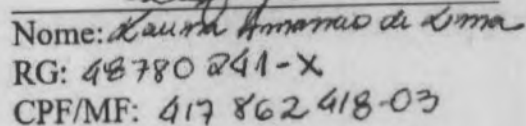 Nome: Laura Amancio de Lima
RG: 48780241-X
CPF/MF: 417 862 418-03